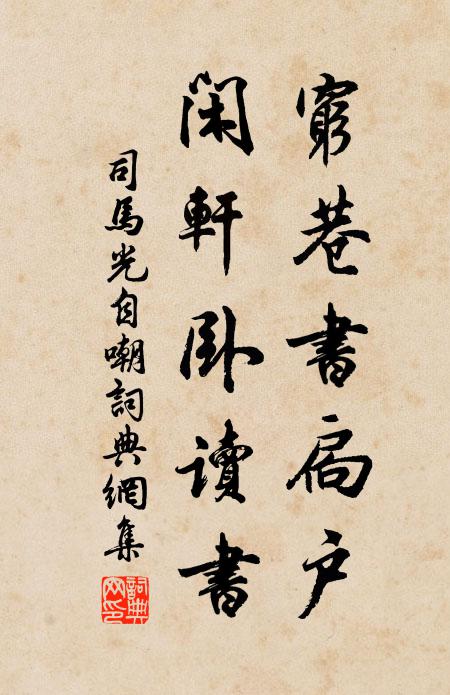 窮巷書扃户
閑軒卧讀書
司馬光自嘲詞典網集
詞典
网印